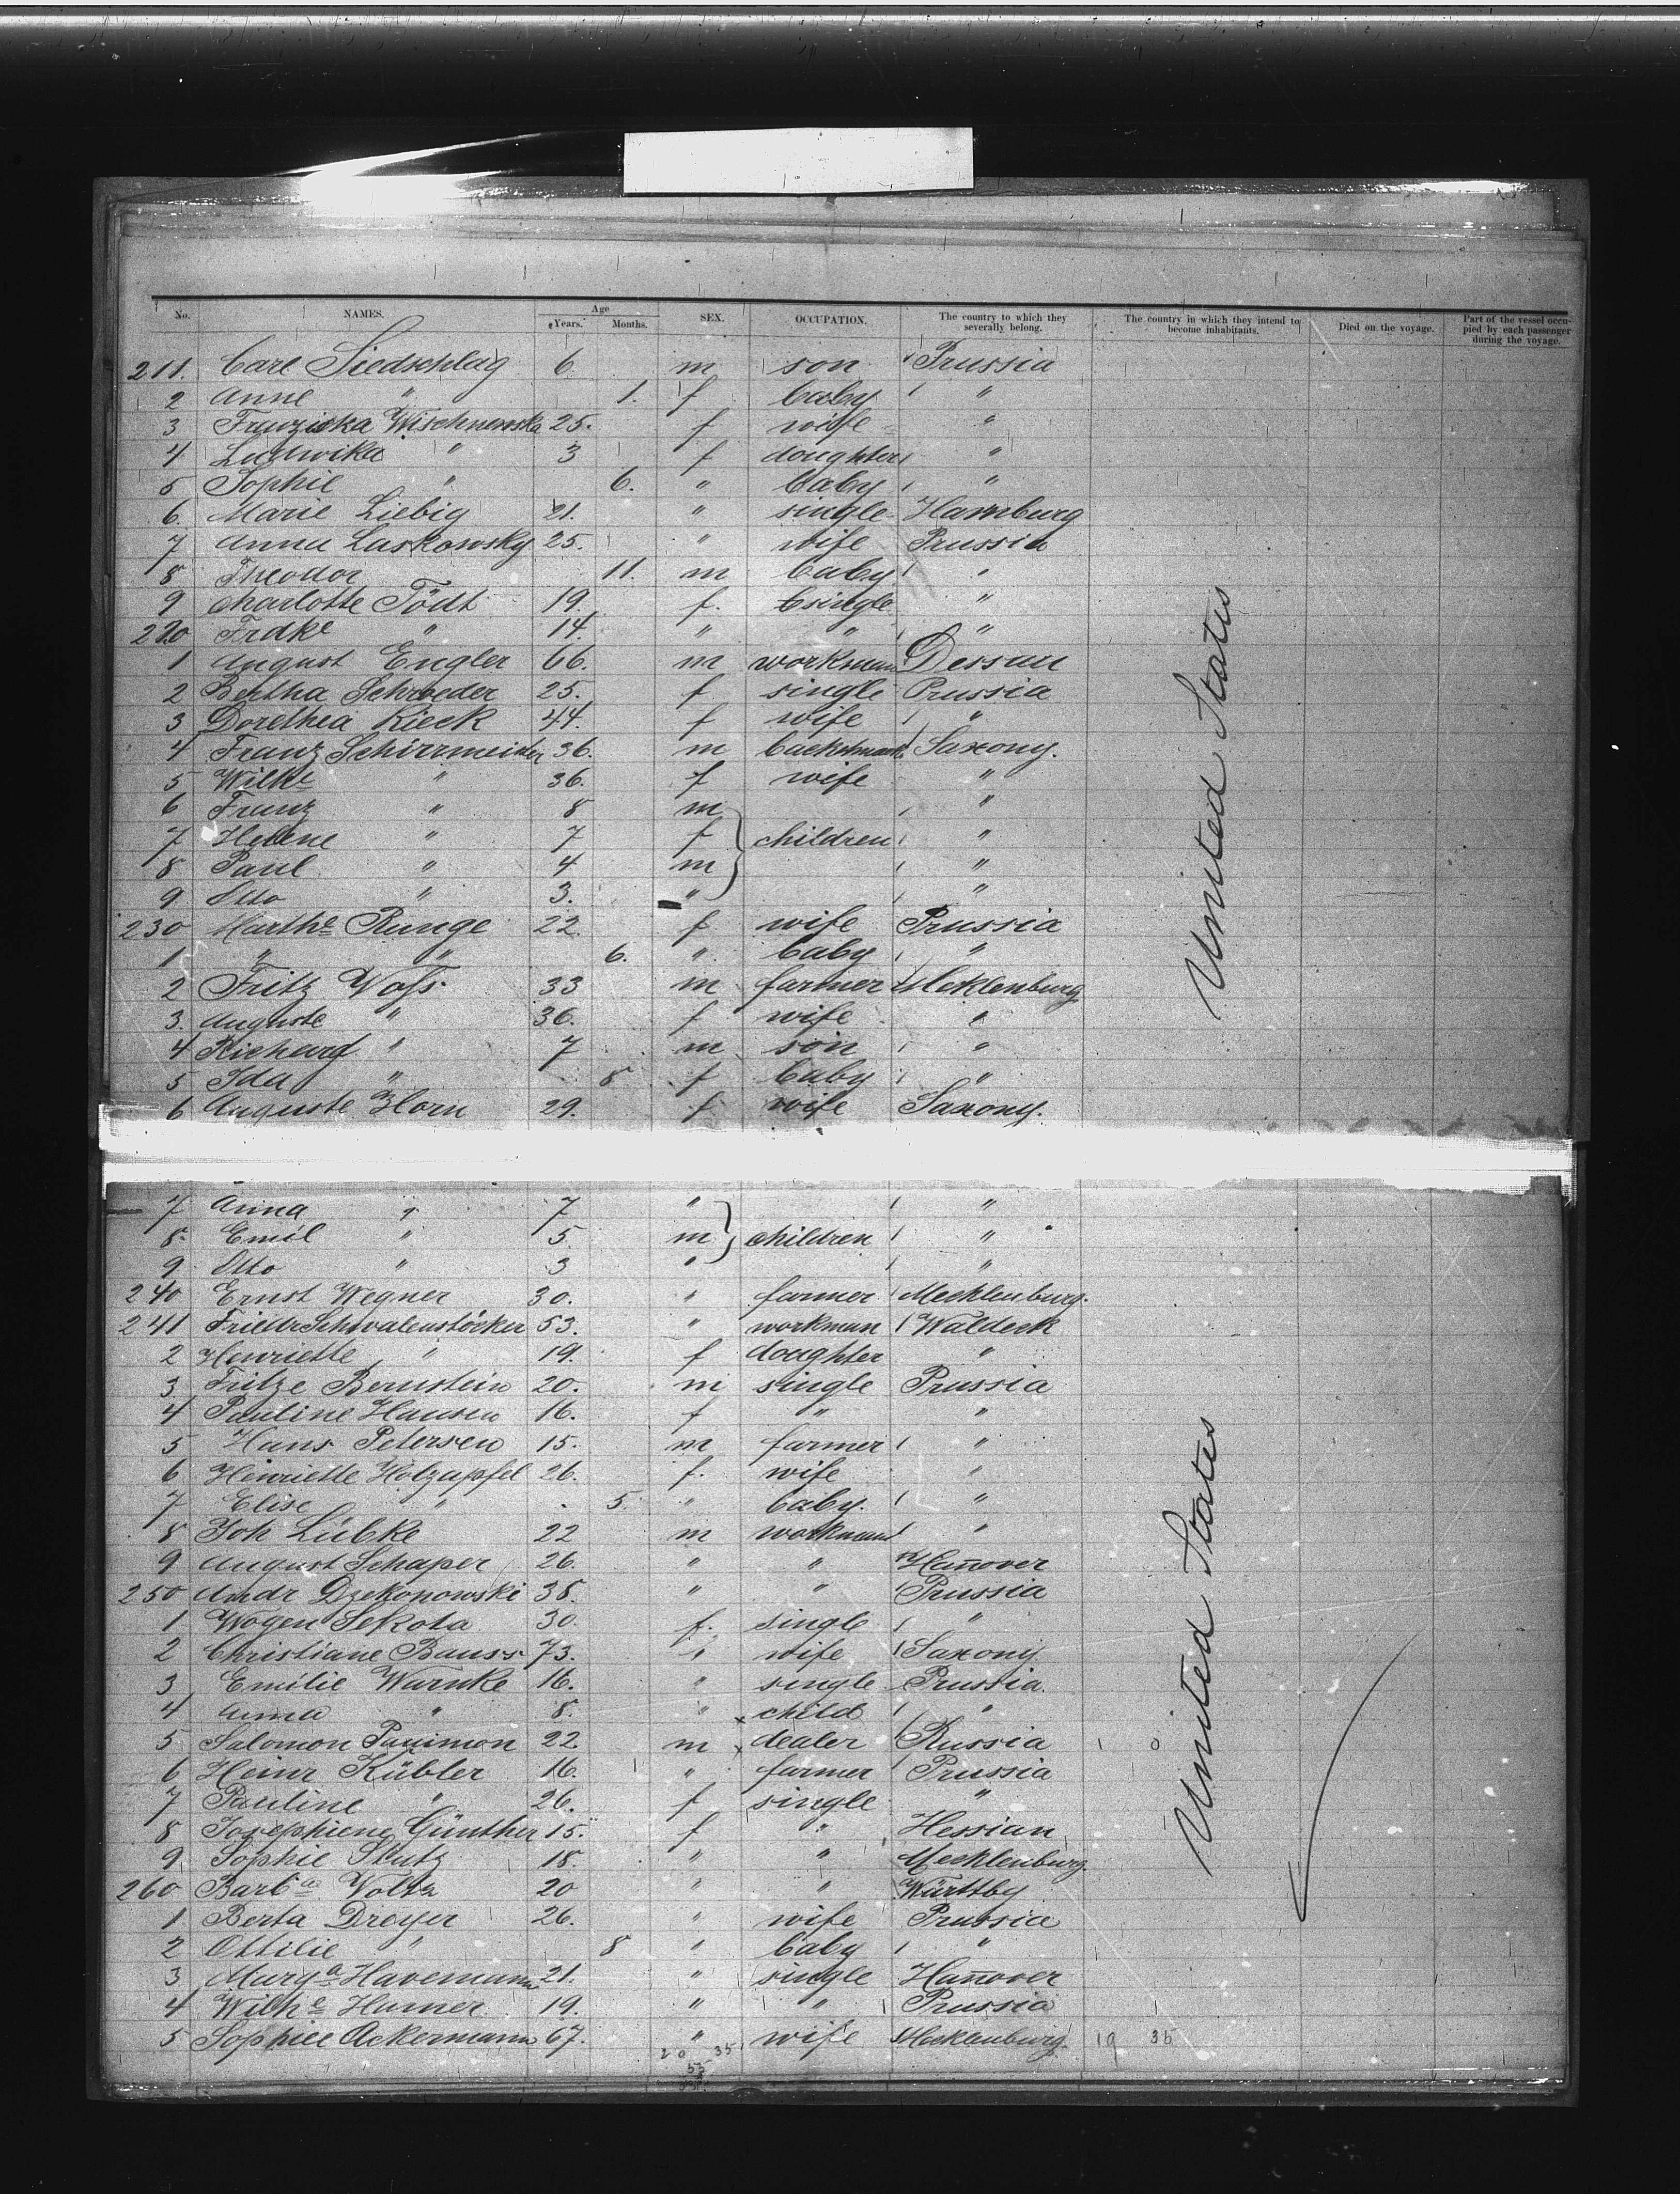 No. NAMES. Age Years. Months. SEX. OCCUPATION. The country to which they severally belong. The country in which they intend to become inhabitants. Died on the voyage. Part of the vessel occupied by each passenger during the voyage.
211. Carl Siedschlag 6 m son Prussia
2 Anne " 1. f baby "
3 Franziska Wischnewska 25. f wife "
4 Ludwika " 3 f doughter "
5 Sophie " 6. " baby "
6. Marie Liebig 21. " single Hamburg
7 Anna Laskowsky 25. " wife Prussia
8 Theodor 11. m baby "
9 Charlotte Födt 19. f. single "
220 Frdke " 14. " " "
1 August Engler 66. m workman Dessau
2 Bertha Schroeder 25. f single Prussia
3 Dorethea Rieck 44. f wife "
4 Franz Schirrmeister 36. m Saxony.
5 Wilhe " 36. f wife "
6 Franz " 8 m "
7 Helene " 7 f children "
8 Paul " 4 m "
9 Otto " 3. " "
230 Marthe Runge 22 f wife Prussia
1 " " 6. " baby "
2 Fritz Voss 33 m farmer Meklenburg
3. Auguste " 36. f wife "
4 Richard " 7 m son "
5 Ida " 8 f baby "
6 Auguste Horn 29. f wife Saxony.
7 Anna " 7 " "
8 Emil " 5. m children "
9 Otto " 3 " "
240 Ernst Wegner 30. " farmer Mecklenburg.
241 Friedr Schwalenstöcker 53. " workman Waldeck
2 Henriette " 19. f doughter "
3 Fritze Bernstein 20. m single Prussia
4 Pauline Hansen 16. f " "
5 Hans Petersen 15. m farmer "
6 Henriette Holzapfel 26. f. wife "
7 Elise " 5. " baby. "
8 Joh Lübke 22 m workman "
9 August Schaper 26. " " Hanover
250 Andr Dzekonowski 38. " " Prussia
1 Wogen Sekota 30. f. single "
2 Christiane Bauss 73. " wife Saxony
3 Emilie Warnke 16. " single Prussia
4 Anna " 8. " child "
5 Salomon 22. m dealer Russia
6 Heinr Kübler 16. " farmer Prussia
7 Pauline " 26. f single "
8 Josephiene Günther 15. f " Hessian
9 Sophie Stutz 18. " " Mecklenburg.
260 Barba Voltz 20 " " Württbg
1 Berta Dreyer 26. " wife Prussia
2 Ottilie " 8 " baby "
3 Marga Havemann 21. " single Hanover
4 Wilhe Hamer 19. " " Prussia
5 Sophiee Ackermann 67. " wife Mecklenburg. 19 35
20 35
55
United States
United States